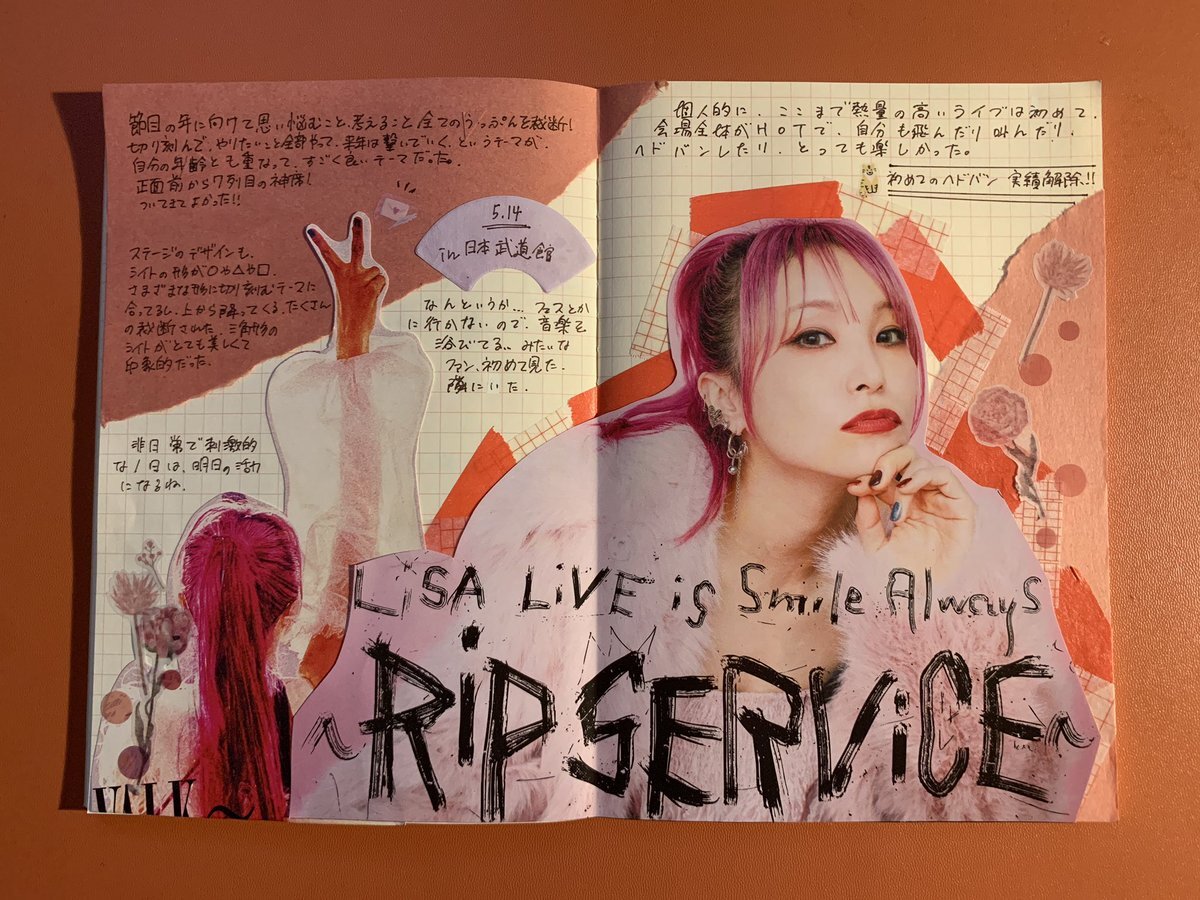 節目の年に向けて思い悩むこと、考えること全てのうっぷんを裁断し
切り刻んで、やりたいこと全部やって、来年は繋いでいく、というテーマが、
自分の年齢とも重なって、すごく良いテーマだった。
正面前から7列目の神席!
ついてきてよかった!!
5.14
in 日本武道館
ステージのデザインも、
ライトの形が○や△や□、
さまざまな形に切り刻むテーマに
合ってるし、上から降ってくる、たくさん
の裁断された、三角形の
ライトがとても美しくて
印象的だった。
なんというか… フェスとか
に行かないので、音楽を
浴びてる、みたいな
ファン、初めて見た。
隣にいた。
非日常で刺激的
な1日は、明日の活力
になるね。
個人的に、ここまで熱量の高いライブは初めて。
会場全体がHOTで、自分も飛んだり叫んだり、
ヘドバンしたり、とっても楽しかった。
初めてのヘドバン 実績解除!!
LiSA LiVE is Smile Always
~RiP SERViCE~